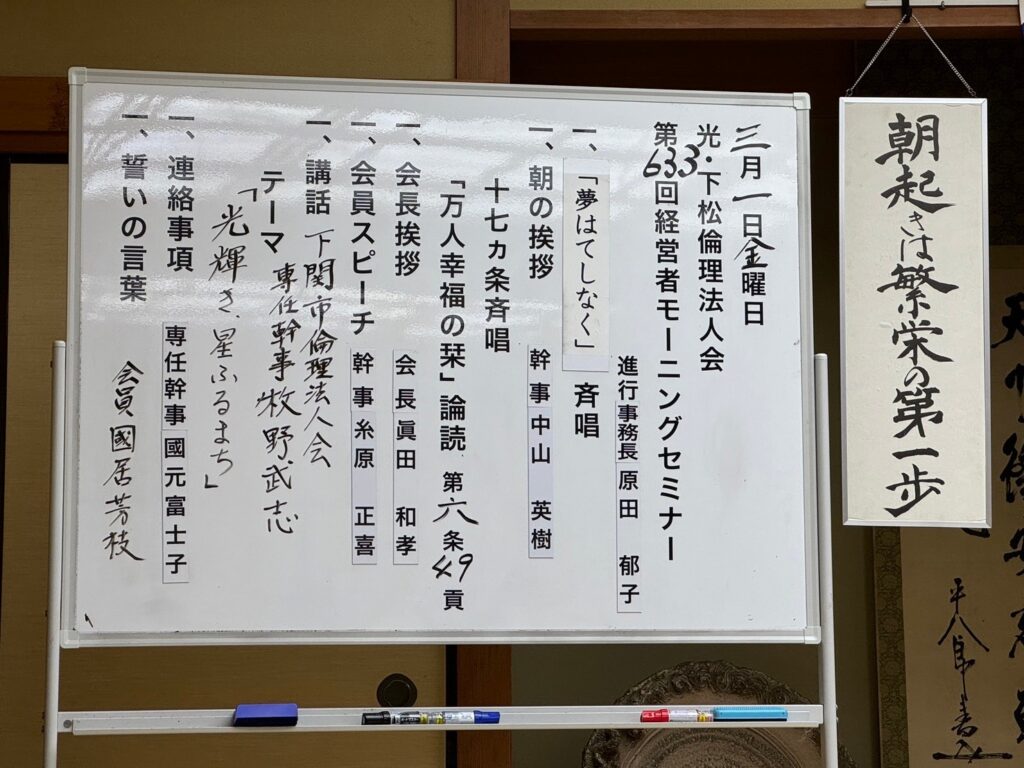 朝起きは繁栄の第一歩
三月一日金曜日
光・下松倫理法人会
第633回経営者モーニングセミナー
進行事務長 原田 郁子
一、「夢はてしなく」斉唱
一、朝の挨拶 幹事 中山 英樹
十七カ条斉唱
「万人幸福の栞」論読 第六条 49貢
一、会長挨拶 会長 眞田 和孝
一、会員スピーチ 幹事 糸原 正喜
一、講話 下関市倫理法人会
専任幹事 牧野武志
テーマ
「光輝き、星ふるまち」
一、連絡事項 専任幹事 國元富士子
一、誓いの言葉 会員 國居芳枝